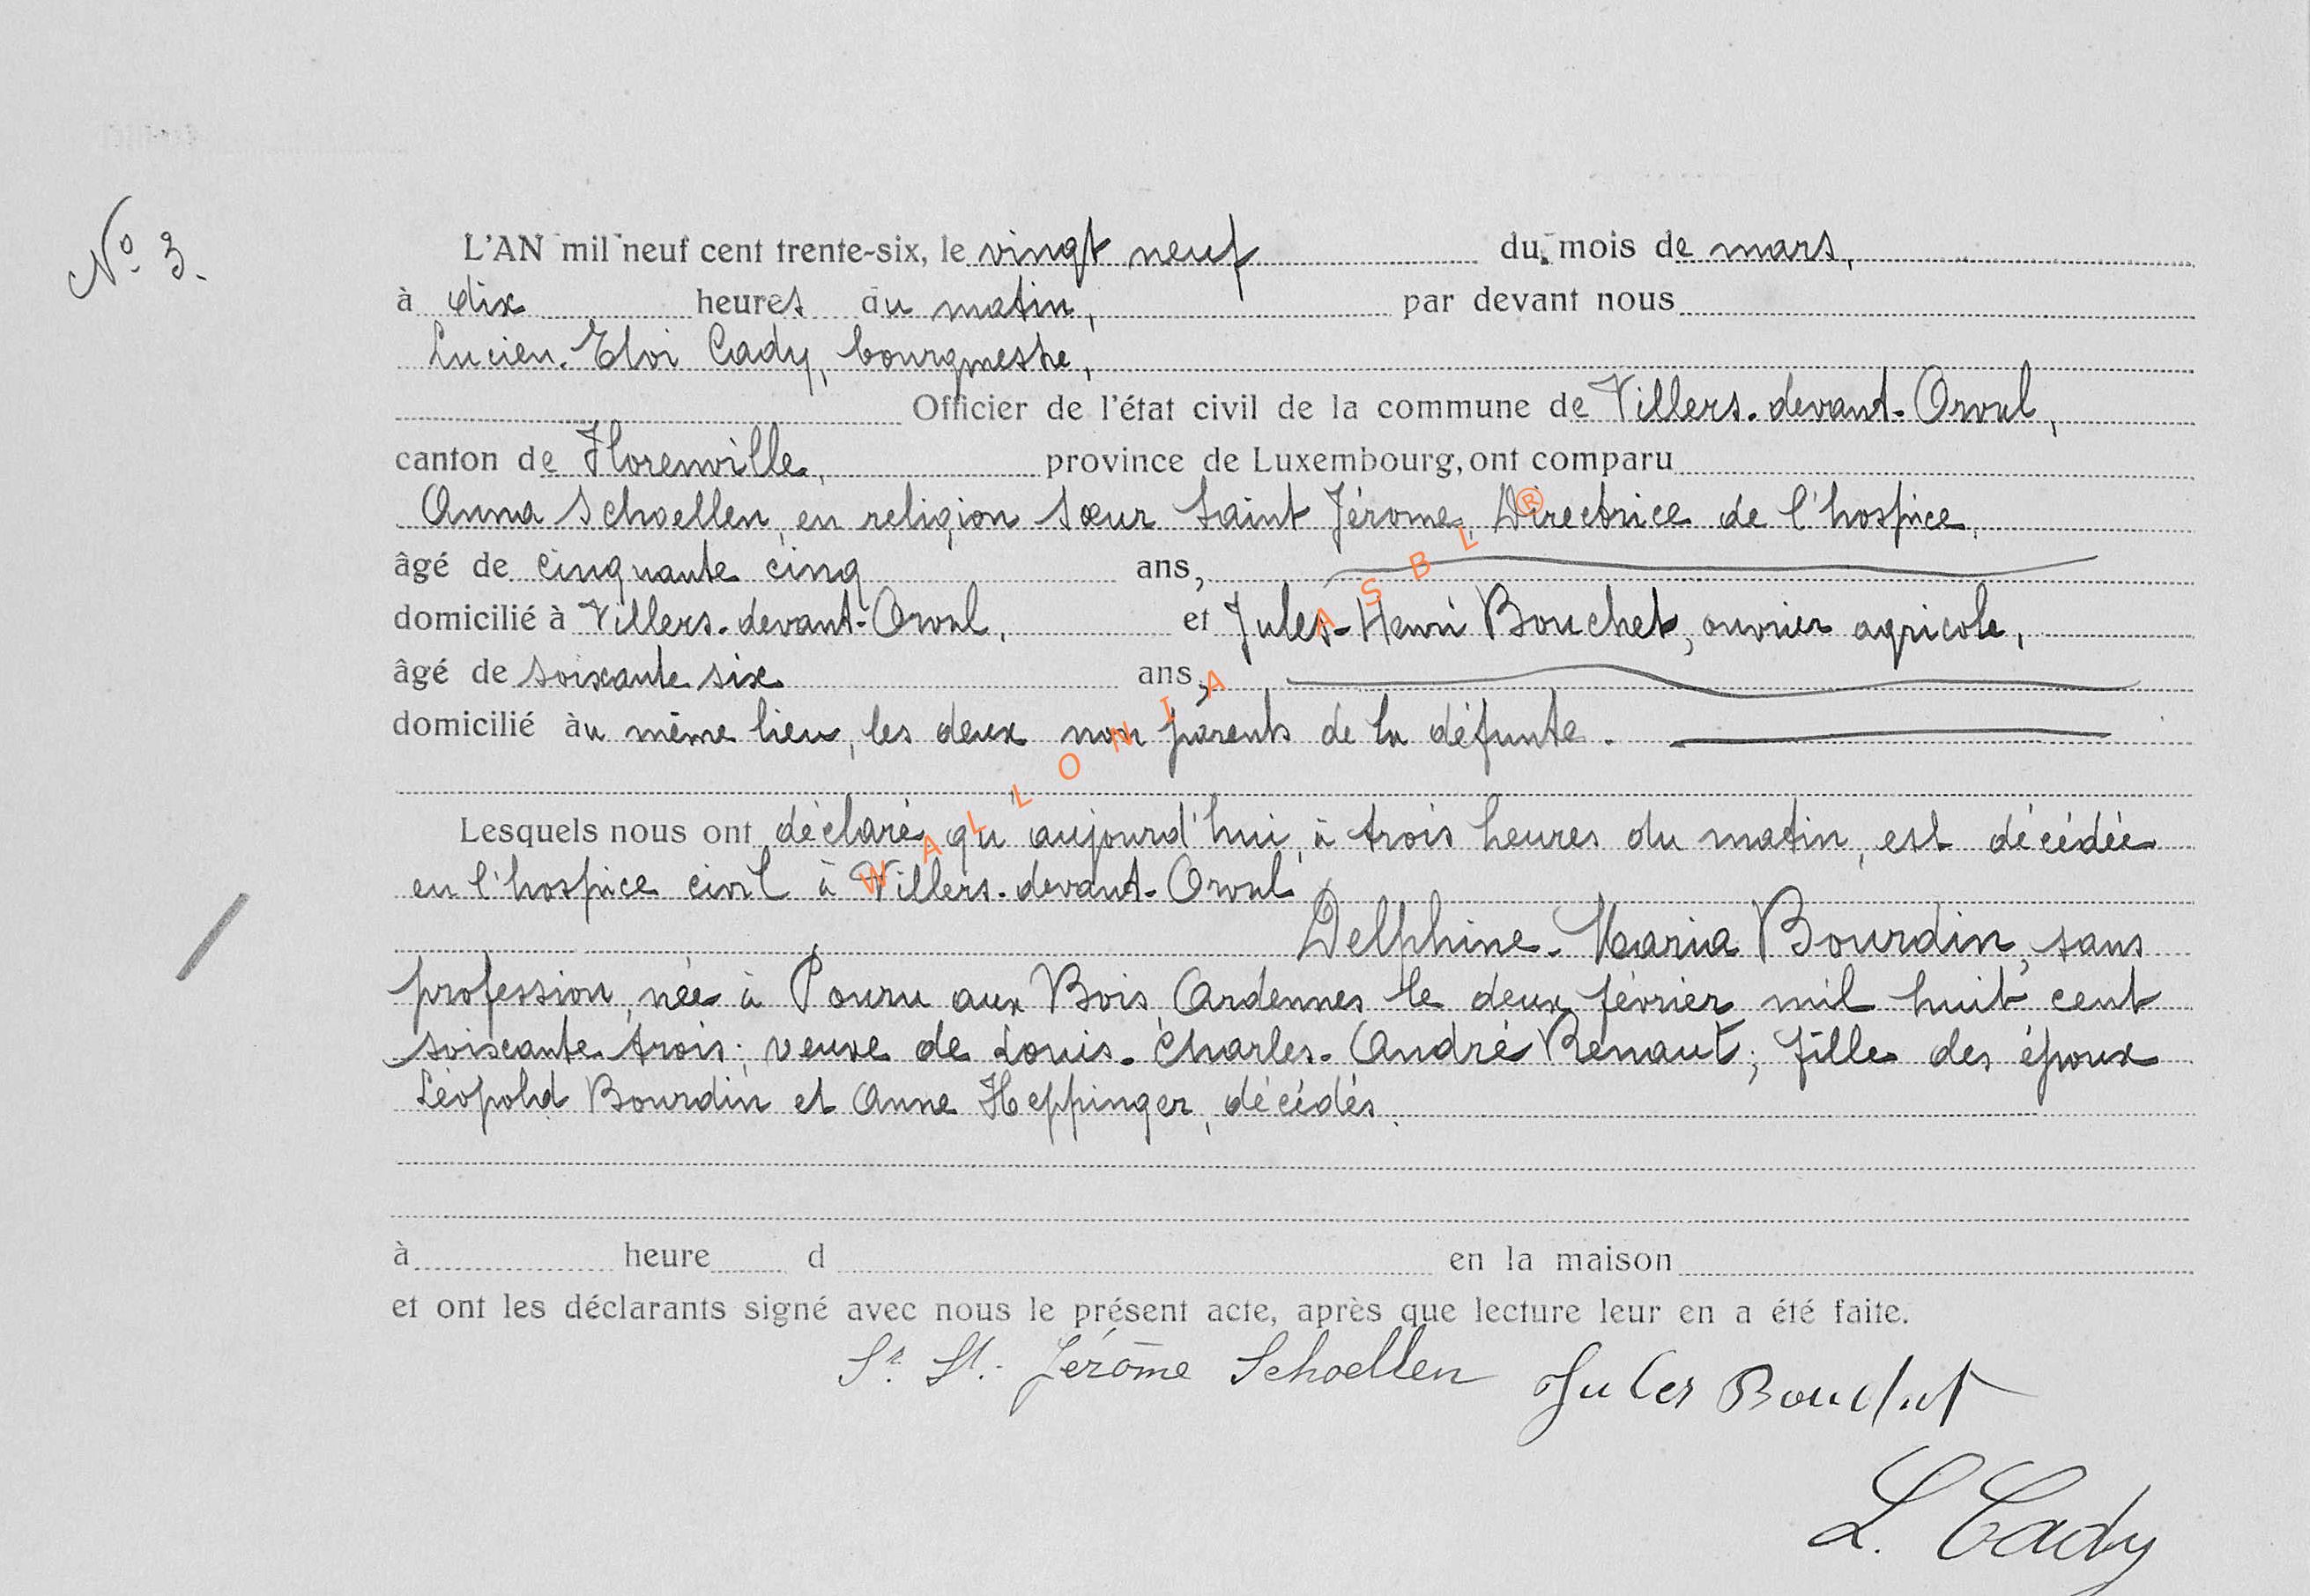 N° 3.
L'AN mil neuf cent trente-six, le vingt neuf du mois de mars,
à dix heures du matin, par devant nous
Lucien-Eloi Cady, bourgmestre,
Officier de l'état civil de la commune de Villers-devant-Orval,
canton de Florenville, province de Luxembourg, ont comparu
Anna Schoellen, en religion sœur Saint Jérome, Directrice de l'hospice,
âgé de cinquante cinq ans,
domicilié à Villers-devant-Orval, et Jules-Henri Bouchet, ouvrier agricole,
âgé de soixante six ans,
domicilié au même lieu, les deux non parents de la défunte.
Lesquels nous ont déclaré qu'aujourd'hui, à trois heures du matin, est décédée
en l'hospice civil à Villers-devant-Orval
Delphine-Maria Bourdin, sans
profession, née à Pouru aux Bois, Ardennes le deux février mil huit cent
soixante trois; veuve de Louis-Charles-André Renaut; fille des époux
Léopold Bourdin et Anne Heppinger, décédés.
à heure d en la maison
et ont les déclarants signé avec nous le présent acte, après que lecture leur en a été faite.
Sr. St. Jérôme Schoellen Jules Bouchet
L. Cady
WALLONIA ASBL ®